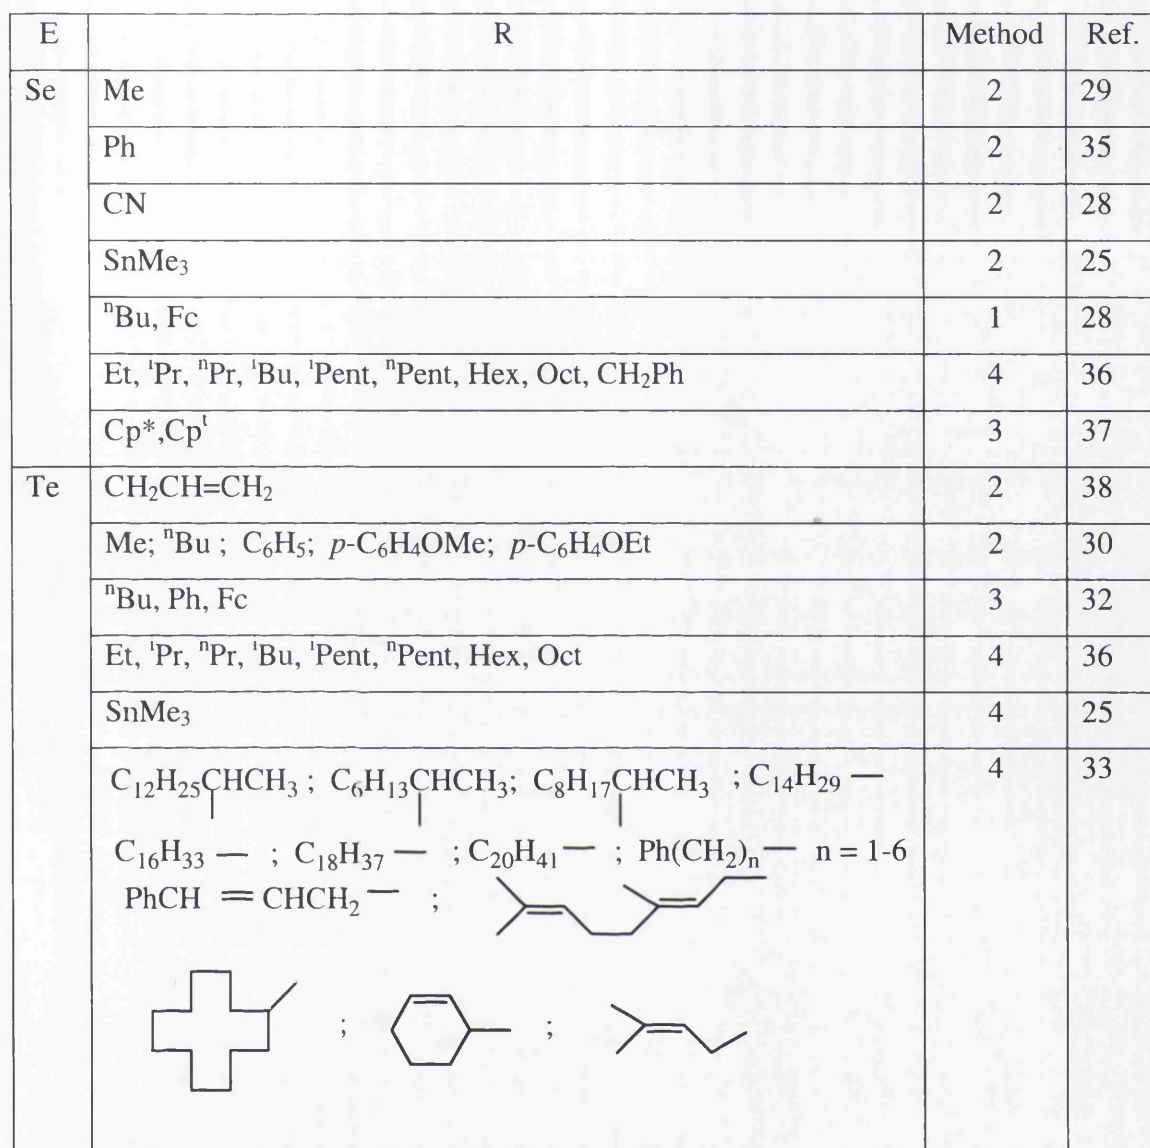 E R Method Ref.
Se Me 2 29
Ph 2 35
CN 2 28
SnMe₃ 2 25
ⁿBu, Fc 1 28
Et, ⁱPr, ⁿPr, ⁱBu, ⁱPent, ⁿPent, Hex, Oct, CH₂Ph 4 36
Cp*,Cpᵗ 3 37
Te CH₂CH=CH₂ 2 38
Me; ⁿBu ; C₆H₅; p-C₆H₄OMe; p-C₆H₄OEt 2 30
ⁿBu, Ph, Fc 3 32
Et, ⁱPr, ⁿPr, ⁱBu, ⁱPent, ⁿPent, Hex, Oct 4 36
SnMe₃ 4 25
C₁₂H₂₅CHCH₃ ; C₆H₁₃CHCH₃; C₈H₁₇CHCH₃ ; C₁₄H₂₉ — 4 33
C₁₆H₃₃ — ; C₁₈H₃₇ — ; C₂₀H₄₁ — ; Ph(CH₂)ₙ — n = 1-6
PhCH = CHCH₂ — ;
; ;